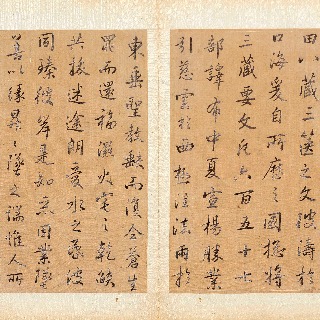 田八藏三篋之文波濤於
口海爰自所歷之國總將
三藏要文凡六百五十七
部譯布中夏宣揚勝業
引慈雲於西極注法雨於
東垂聖教缺而復全蒼生
罪而還福濕火宅之乾焰
共拔迷途朗愛水之昏波
同臻彼岸是知惡因業墜
善以緣昇〻墜之端惟人所